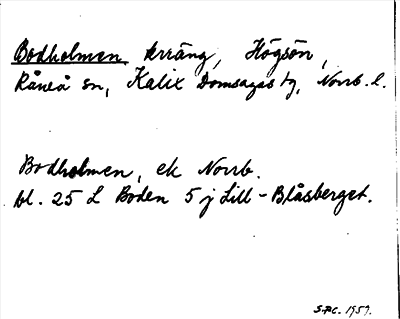 Bodholmen krräng, Högsön,
Råneå sn, Kalix Domsagas tg, Norrb. l.
Bodholmen, ek Norrb.
bl. 25 L Boden 5 j Lill-Blåsberget.
S.P.C. 1959.